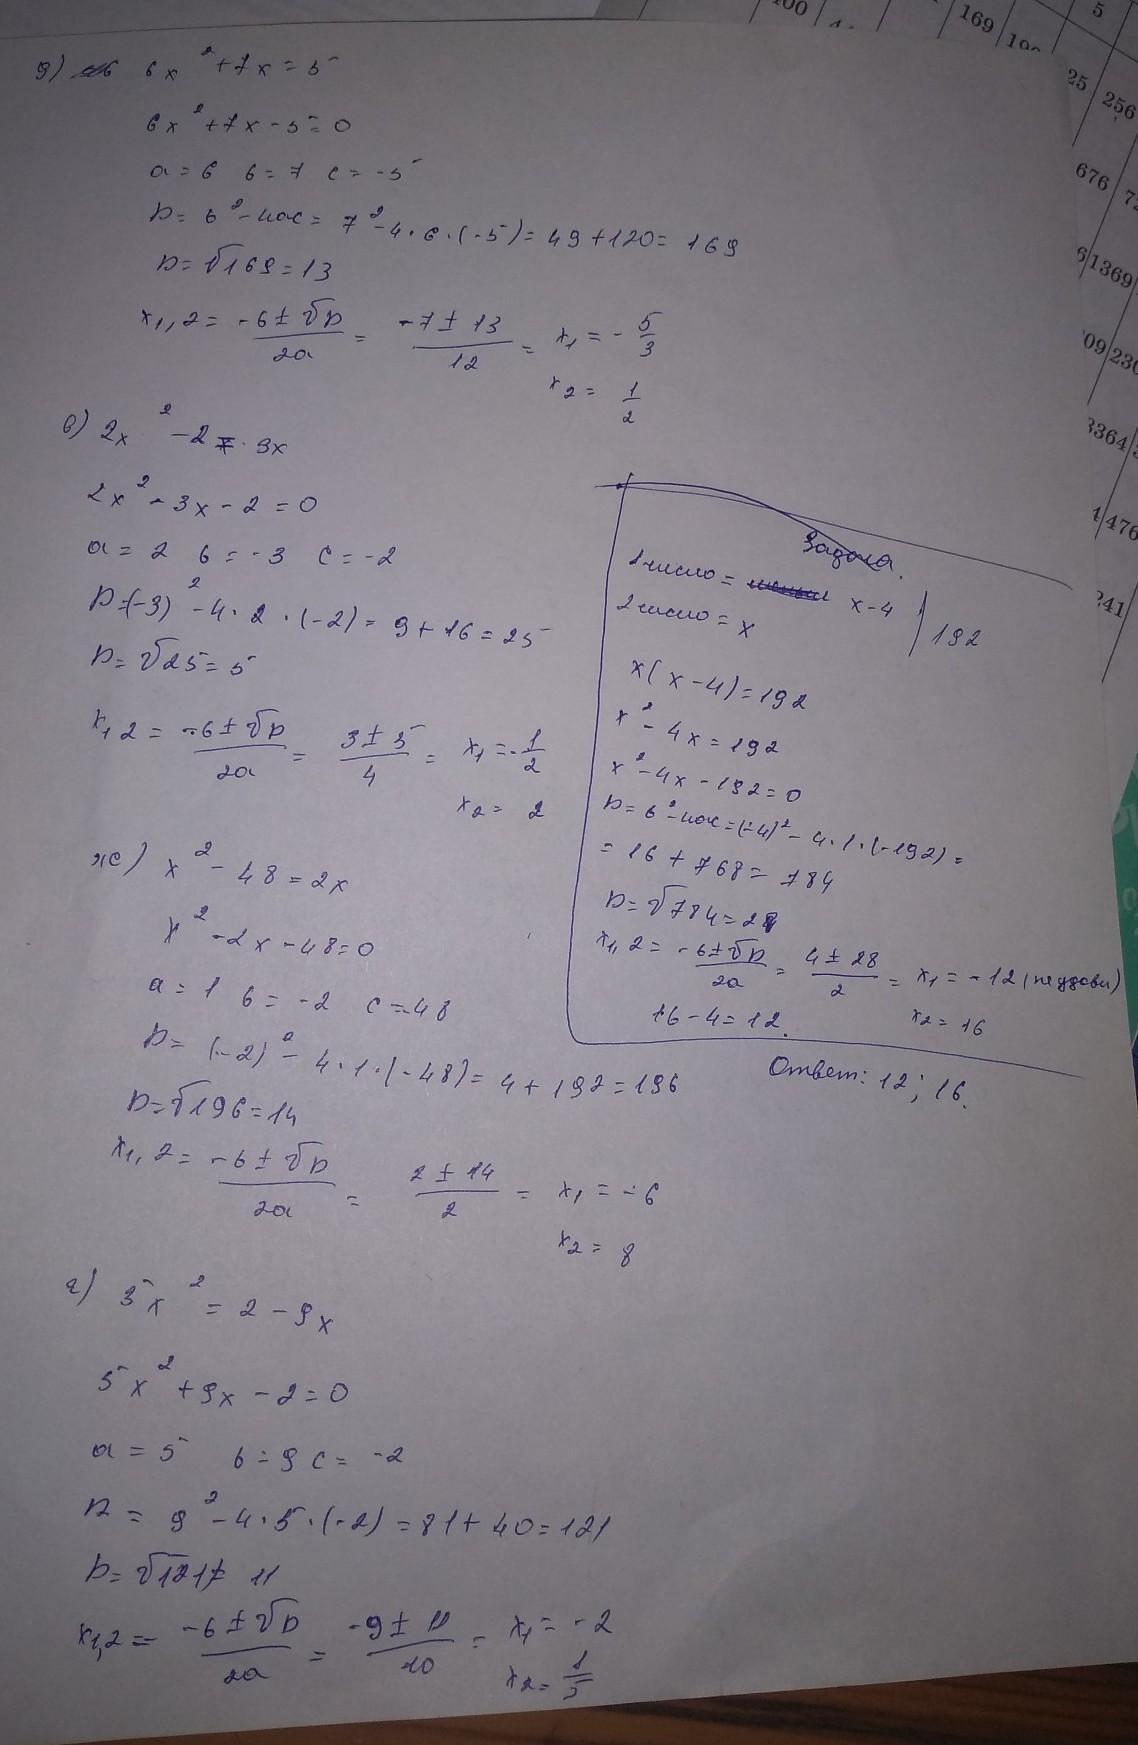 д) 6x² + 7x = 5
6x² + 7x - 5 = 0
a = 6 b = 7 c = -5
D = b² - 4ac = 7² - 4 · 6 · (-5) = 49 + 120 = 169
D = √169 = 13
x1,2 = (-b ± √D)/2a = (-7 ± 13)/12 = x₁ = - 5/3
x₂ = 1/2
в) 2x² - 2 = 3x
2x² - 3x - 2 = 0
a = 2 b = -3 c = -2
D = (-3)² - 4 · 2 · (-2) = 9 + 16 = 25
D = √25 = 5
x1,2 = (-b ± √D)/2a = (3 ± 5)/4 = x₁ = - 1/2
x₂ = 2
ж) x² - 48 = 2x
x² - 2x - 48 = 0
a = 1 b = -2 c = -48
D = (-2)² - 4 · 1 · (-48) = 4 + 192 = 196
D = √196 = 14
x1,2 = (-b ± √D)/2a = (2 ± 14)/2 = x₁ = -6
x₂ = 8
г) 5x² = 2 - 9x
5x² + 9x - 2 = 0
a = 5 b = 9 c = -2
D = 9² - 4 · 5 · (-2) = 81 + 40 = 121
D = √121 = 11
x1,2 = (-b ± √D)/2a = (-9 ± 11)/10 = x₁ = -2
x₂ = 1/5
Задача.
1 число = x - 4
2 число = x
192
x(x - 4) = 192
x² - 4x = 192
x² - 4x - 192 = 0
D = b² - 4ac = (-4)² - 4 · 1 · (-192) =
= 16 + 768 = 784
D = √784 = 28
x1,2 = (-b ± √D)/2a = (4 ± 28)/2 = x₁ = -12 (не удовл)
x₂ = 16
16 - 4 = 12.
Ответ: 12; 16.
100
169
5
256
25
676
1369
3364
476
241